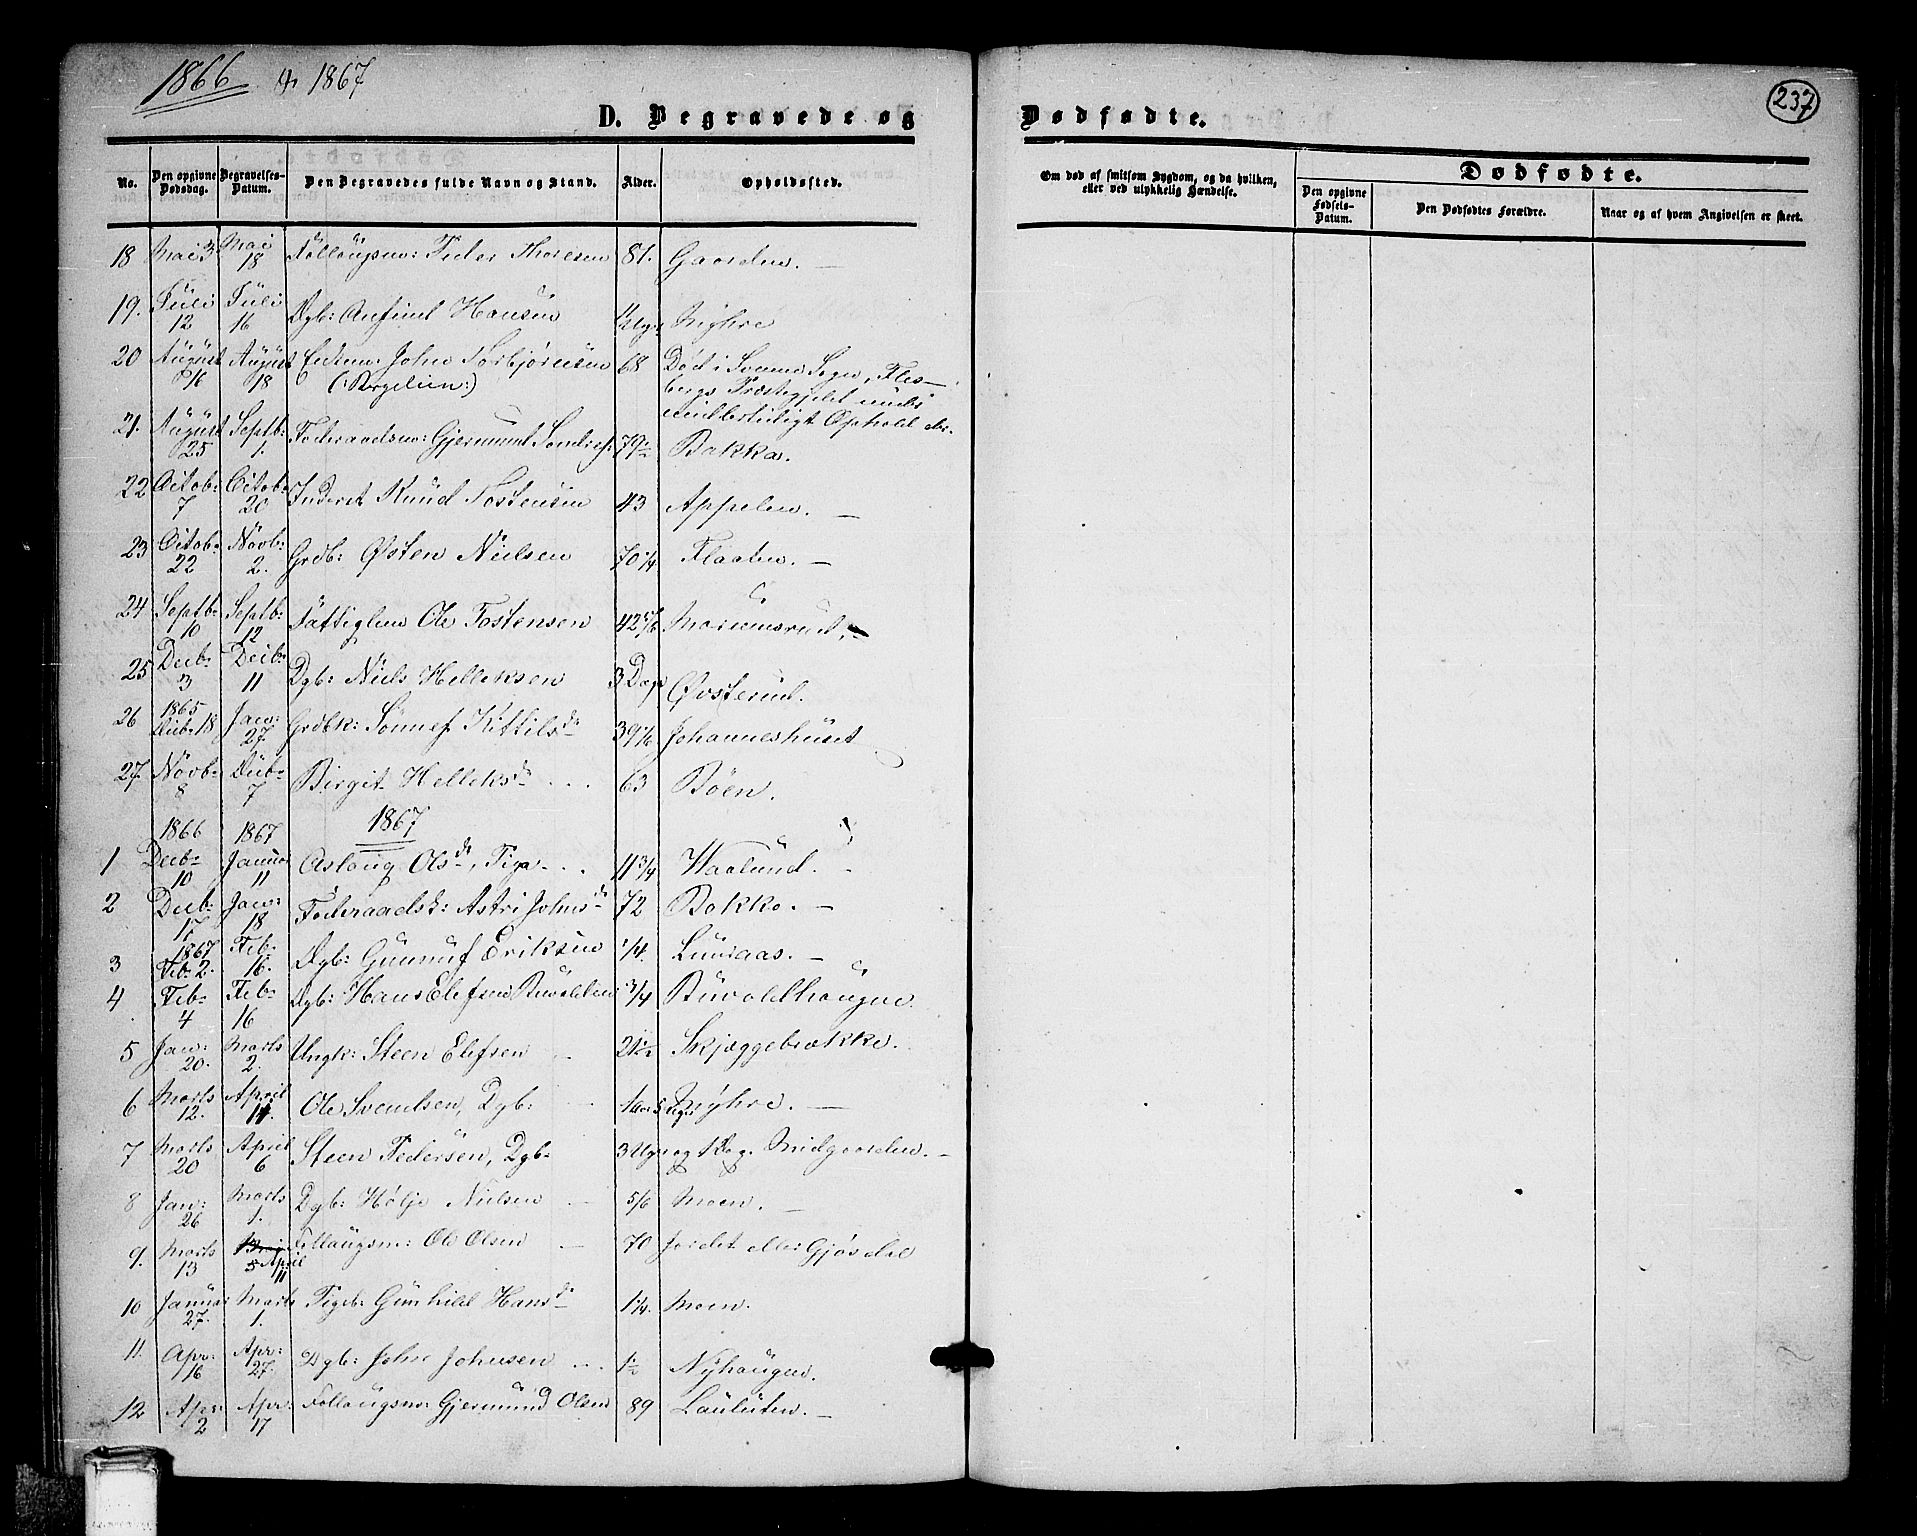 1866 & 1867
237
D. Begravede og Dødfødte.
No. Den opgivne Dødsdag. Begravelses-Datum. Den Begravedes fulde Navn og Stand. Alder. Opholdssted. Om død af smitsom Sygdom, og da hvilken, eller ved ulykkelig Hændelse. Dødfødte. Den opgivne Fødsels-Datum. Den Dødfødtes Forældre. Naar og af hvem Angivelsen er skeet.
18 Mai 3 Mai 18 Peder Thoresen 81. Gaarden. —
19. Juli 12 Juli 16 Dgb: Anfind Hansen Myhre
20 August 16 August 18 Enkem: John Torbjørnsen 68 Død i Svenne Sogn, Fles-
bergs Præstegjeld under
midlertidigt Ophold der.
21. August 25 Septb: 1. Føderaadsm: Gjermund Sondres: 79½ Bakka.
22 Octob: 7 Octob: 20 Inderst Knud Tostensen 43 Appelen. —
23 Octob: 22 Novb: 2. Grdb: Østen Nielsen 70¼ Flaaten. —
24 Septb: 10 Septb: 12 Fattiglem Ole Tostensen 42 5/6
25 Decb: 3 Decb: 11 Dgb: Niels Helleksen 3 Dage Øvsterud.
26 1865 Decb: 18 Jan: 27. Grdbk: Sønnef Kittilsdr Johanneshuset
27. Novb: 8 Decb: 7 Birgit Helleksdr . . . 63 Bøen.
1867
1 1866 Decb: 10 1867 Januar 11 Aslaug Olsdr, Pige . . . 11¾ Haalund.
2 Decb: 17 Jan: 18 Føderaadsk: Astri Johnsdr 72 Bakka. —
3 1867 Feb: 2. Feb: 16. Dgb: Gunnuf Eriksen ¼. Luuraas. —
4 Feb: 4 Feb: 16 Dgb: Hans Elefsen ¾
5 Jan: 20. Marts 2. Ungk: Steen Elefsen 21½ Skjæggebrække.
6 Marts 12. April Ole Svendsen, Dgb: Myhre. —
7 Marts 20 April 6 Steen Pedersen, Dgb: 3 Uger og 1 Dag. Midgaarden. —
8 Jan: 26 Marts 1. Dgb: Hølje Nielsen 5/6 Moen. —
9. Marts 13 April 11 Ole Olsen 70 Jordet eller Gjøsdal
10 Januar 27. Marts 1. Pigeb: Gunhild Hansdr 1¼. Moen.
11. Apr: 16 Apr: 27. Dgb: John Johnsen . . . 1½ Nyhaugen.
12 Apr: 2 Apr: 17 Gjermund Olsen 89